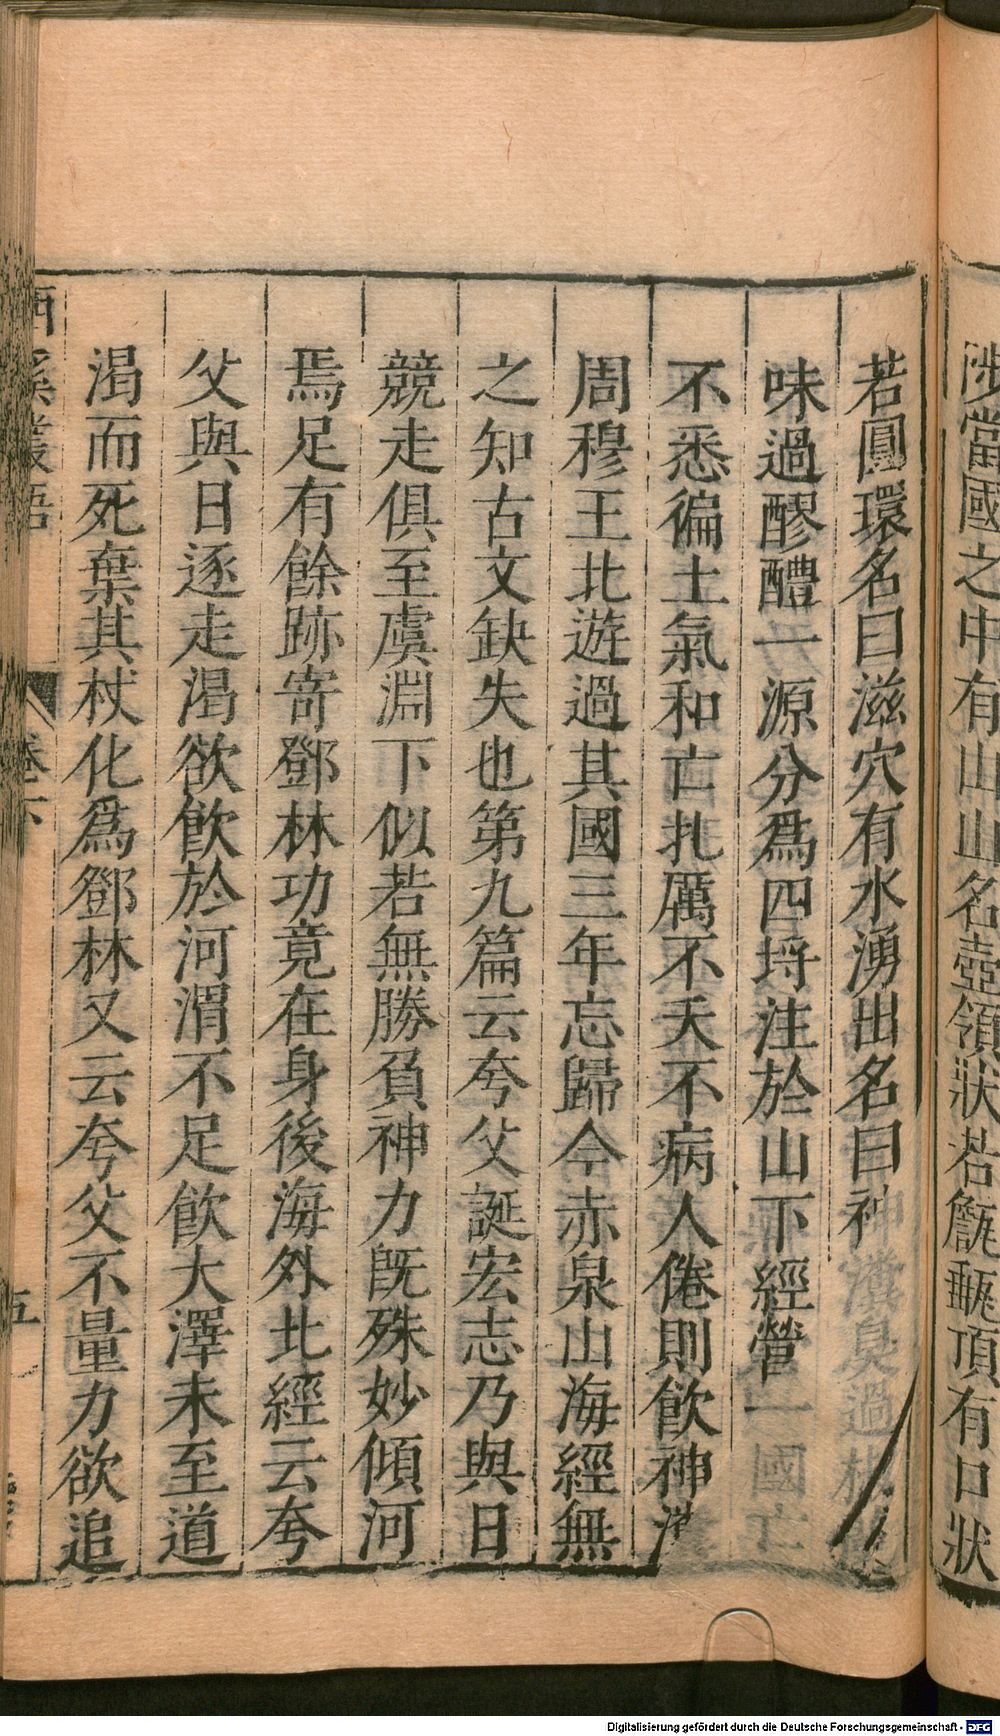 涉當國之中有山山名壺領狀若甔甀頂有口狀
若圓環名曰滋穴有水湧出名曰神瀵臭過椒
味過醪醴一源分爲四埒注於山下經營一國亡
不悉徧土氣和亡札厲不夭不病人倦則飲神瀵
周穆王北遊過其國三年忘歸今赤泉山海經無
之知古文缺失也第九篇云夸父誕宏志乃與日
競走俱至虞淵下似若無勝負神力旣殊妙傾河
焉足有餘跡寄鄧林功竟在身後海外北經云夸
父與日逐走渴欲飮於河渭不足飮大澤未至道
渴而死棄其杖化爲鄧林又云夸父不量力欲追
西溪叢語
卷下
五
Digitalisierung gefördert durch die Deutsche Forschungsgemeinschaft - DFG